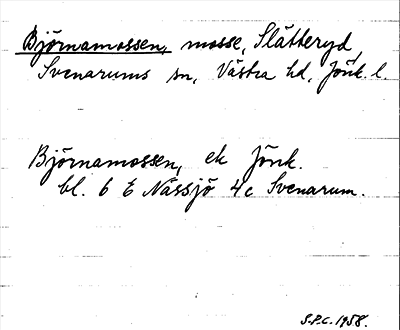 Björnamossen, mosse, Slätteryd,
Svenarums sn, Västra hd, Jönk. l.
Björnamossen, ek Jönk.
bl. 6 E Nässjö 4c Svenarum.
S.P.C. 1958.